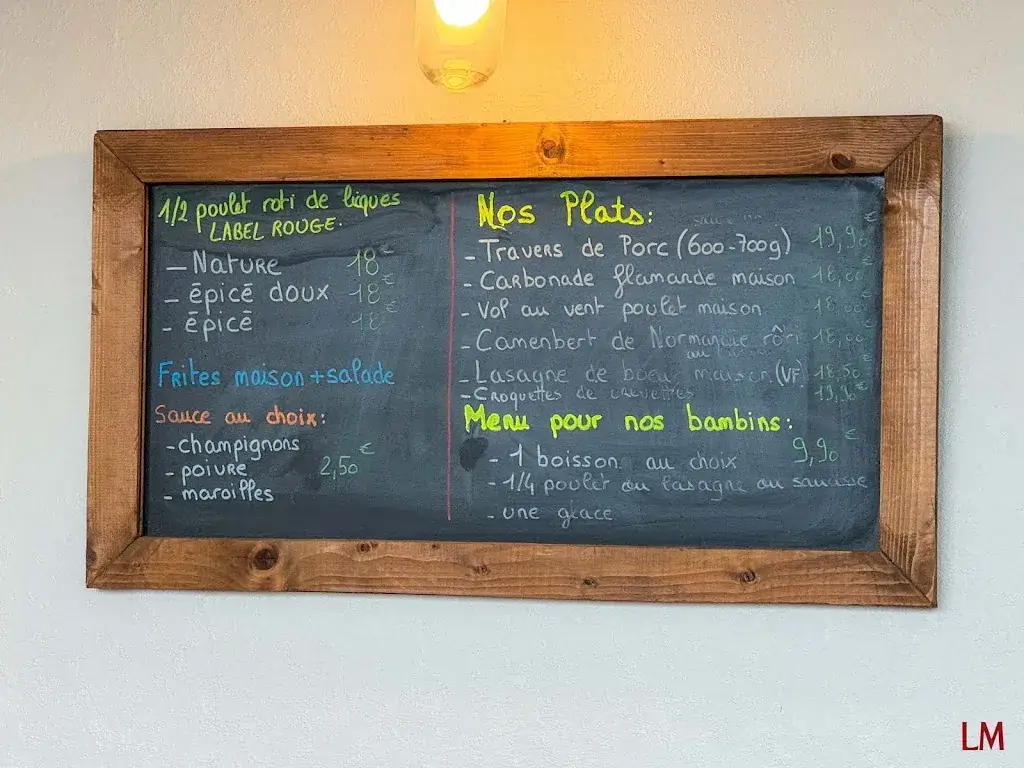 1/2 poulet roti de licques
LABEL ROUGE.
- NATURE 18€
- épicé doux 18€
- épicé 18€
Frites maison + salade
Sauce au choix:
- champignons
- poivre 2,50€
- maroilles
Nos Plats:
- Travers de Porc (600-700g) 19,90€
- Carbonade flamande maison 18,00€
- Vol au vent poulet maison 18,00€
- Camembert de Normandie rôti 18,00€
- Lasagne de boeuf maison (VF) 18,50€
- Croquettes de crevettes 19,90€
Menu pour nos bambins:
- 1 boisson au choix 9,90€
- 1/4 poulet ou lasagne ou saucisse
- une glace
LM